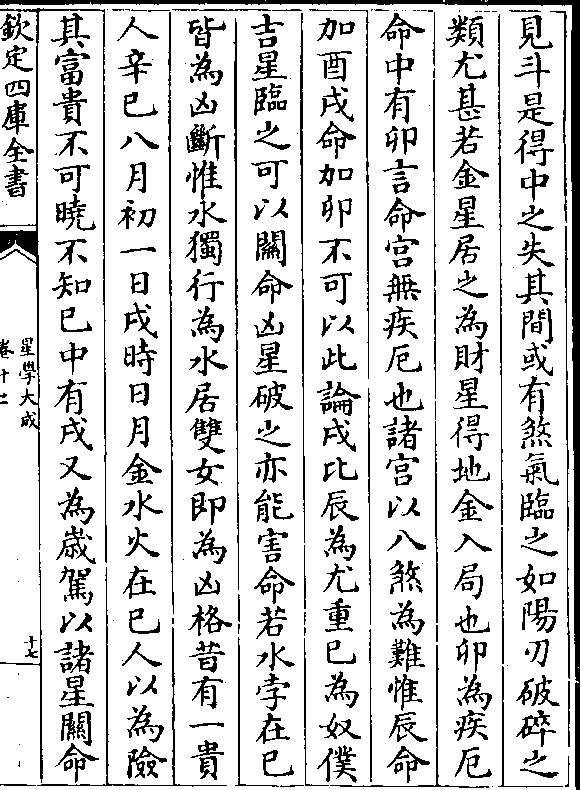 見斗是得中之失其間或有煞氣臨之如陽刃破碎之
類尤甚若金星居之為財星得地金入局也卯為疾厄
命中有卯言命宫無疾厄也諸宫以八煞為難惟辰命
加酉戌命加卯不可以此論戌比辰為尤重巳為奴僕
吉星臨之可以關命凶星破之亦能害命若水孛在巳
皆為凶斷惟水獨行為水居雙女即為凶格昔有一貴
人辛巳八月初一日戌時日月金水火在巳人以為險
其富貴不可曉不知巳中有戌又為歳駕以諸星關命
欽定四庫全書
星學大成
卷十
十七